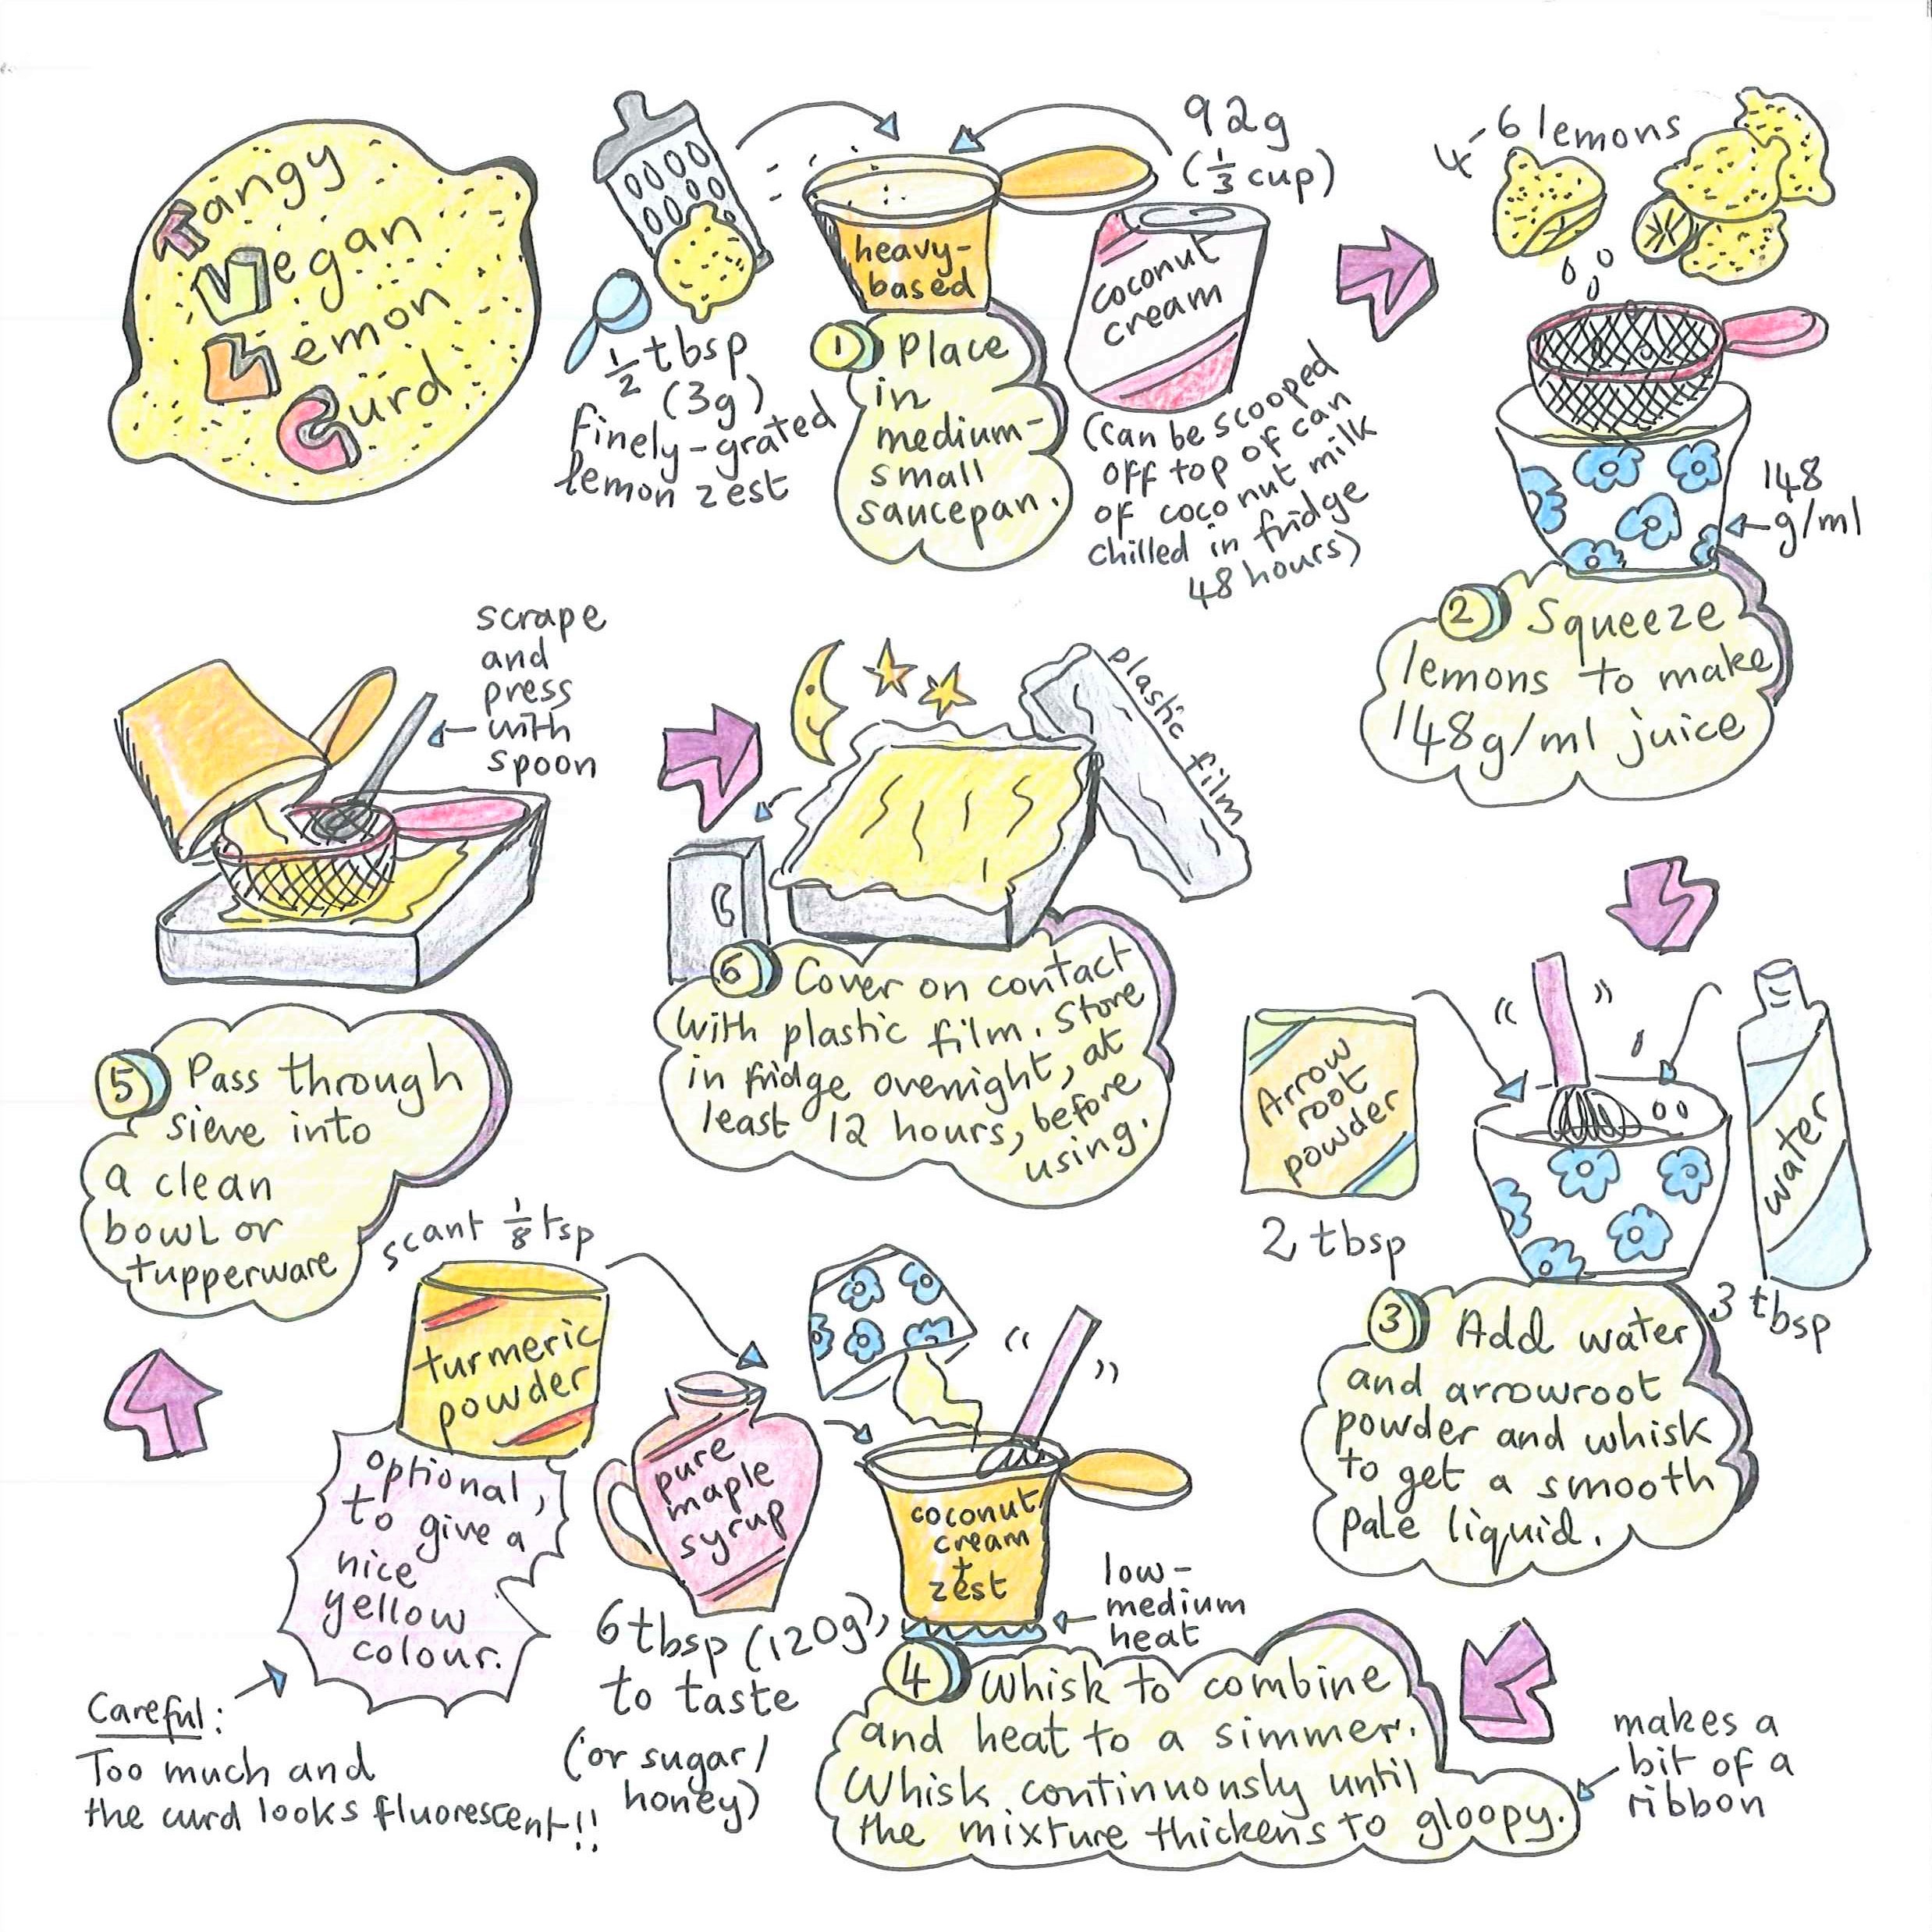 Tangy
Vegan
Lemon
Curd
1/2 tbsp
(3g)
finely-grated
lemon zest
heavy-
based
92g
(1/3 cup)
coconut
cream
(can be scooped
off top of can
of coconut milk
chilled in fridge
48 hours)
1 Place
in
medium-
small
saucepan.
4-6 lemons
148
g/ml
2 Squeeze
lemons to make
148g/ml juice
Arrow
root
powder
2 tbsp
water
3 tbsp
3 Add water
and arrowroot
powder and whisk
to get a smooth
pale liquid.
scant 1/8 tsp
turmeric
powder
optional,
to give a
nice
yellow
colour.
Careful:
Too much and
the curd looks fluorescent!!
pure
maple
syrup
6tbsp (120g),
to taste
(or sugar/
honey)
coconut
cream
+
zest
low-
medium
heat
4 Whisk to combine
and heat to a simmer.
Whisk continuously until
the mixture thickens to gloopy.
makes a
bit of a
ribbon
scrape
and
press
with
spoon
5 Pass through
sieve into
a clean
bowl or
tupperware
plastic film
6 Cover on contact
with plastic film. Store
in fridge overnight, at
least 12 hours, before
using.